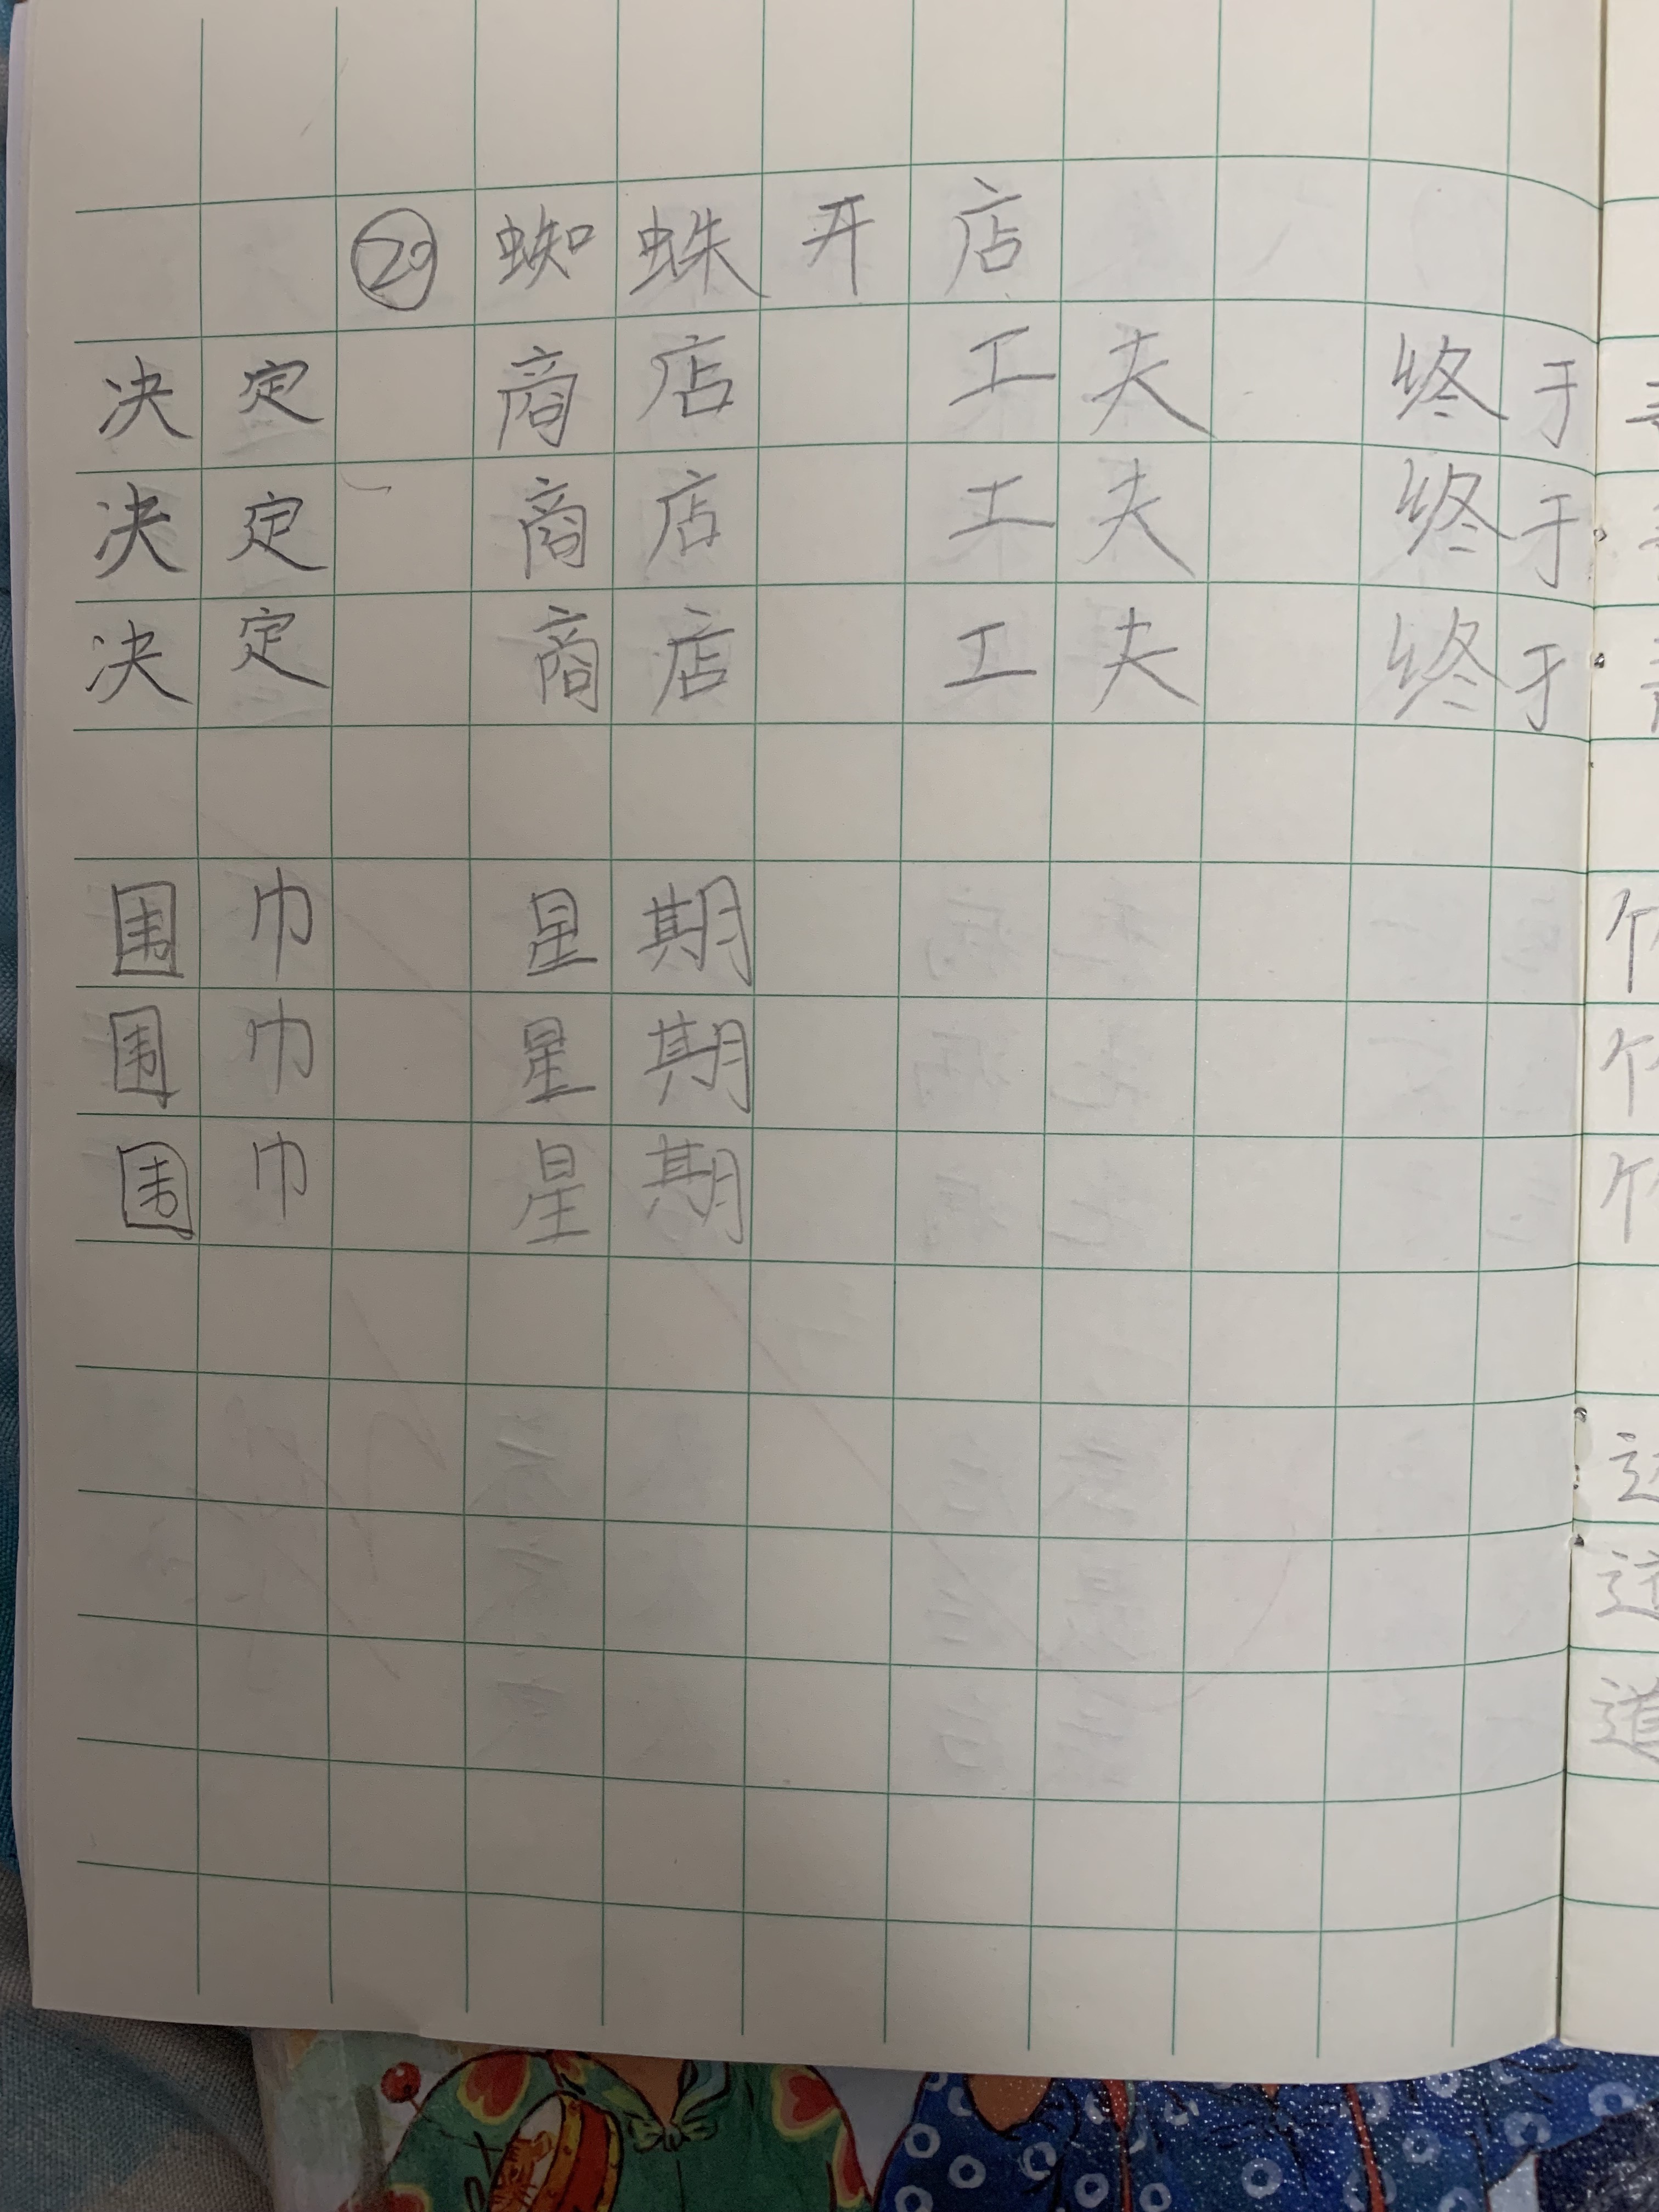 ⑳ 蜘蛛开店
决定 商店 工夫 终于
决定 商店 工夫 终于
决定 商店 工夫 终于
围巾 星期
围巾 星期
围巾 星期